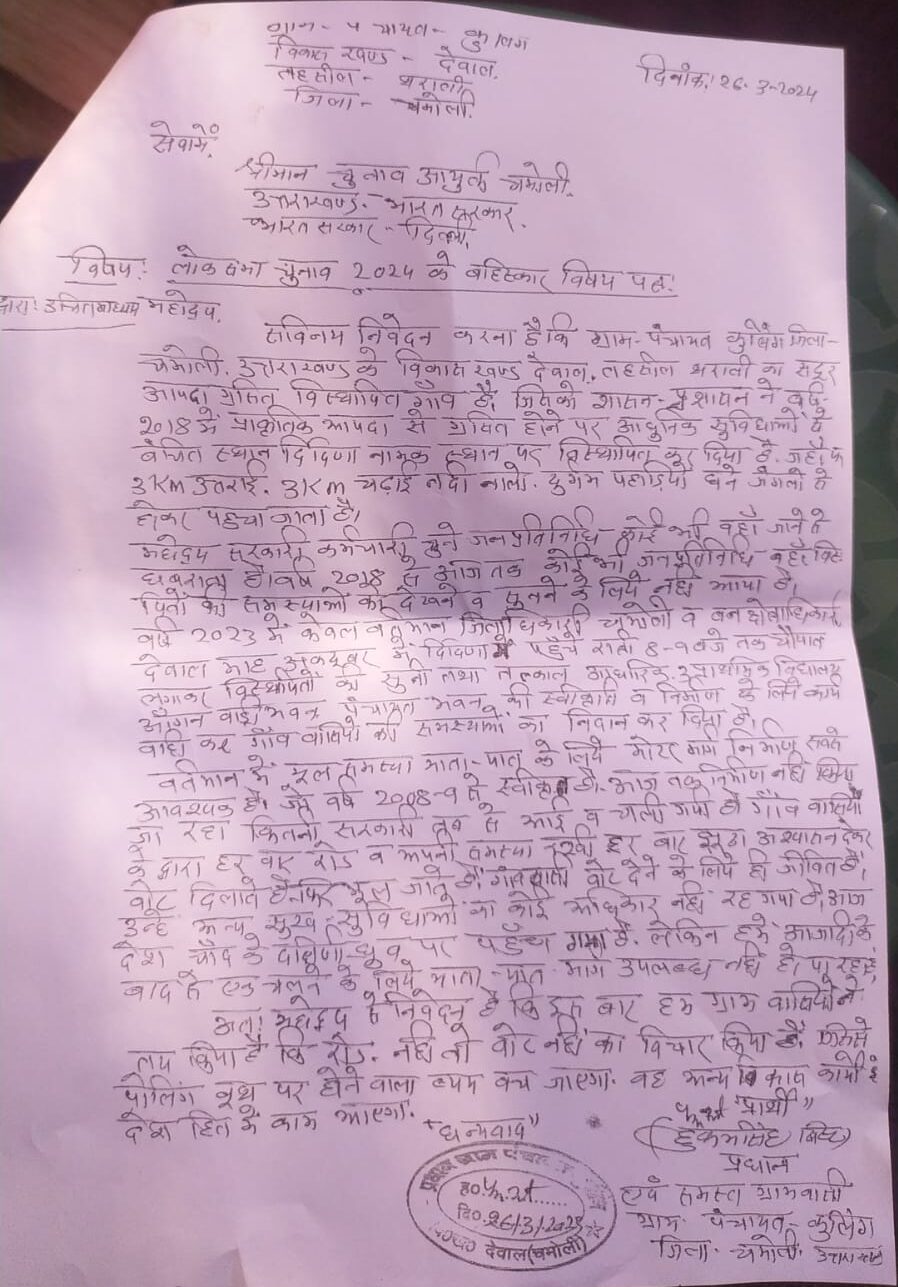 ग्राम-पंचायत- कुलिंग
विकास खण्ड- देवाल.
तहसील- थराली
जिला- चमोली.
दिनांक! 26-3-2024
सेवामें,
श्रीमान चुनाव आयुक्त चमोली.
उत्तराखण्ड- भारत सरकार.
भारत सरकार- दिल्ली,
विषय: लोक सभा चुनाव 2024 के बहिस्कार विषयपत्र!
द्वारा: उचितमाध्यम महोदय,
सविनय निवेदन करना है कि ग्राम-पंचायत कुलिंग जिला-
चमोली. उत्तराखण्ड के विकास खण्ड देवाल, तहसील थराली का सदूर
आपदा ग्रसित विस्थापित गाँव है, जिसको शासन-प्रशासन ने वर्ष-
2018 में प्राकृतिक आपदा से ग्रसित होने पर आधुनिक सुविधाओं से
वंचित स्थान दिदिणा नामक स्थान पर विस्थापित कर दिया है. जहाँ कि
3Km उतराई. 3Km चढ़ाई नदी नालो. दुर्गम पहाड़ियो घने जंगलो से
होकर पहुंचा जाता है।
महोदय सरकारी कर्मचारी चुने जनप्रतिनिधि कोई भी वहाँ जाने से
घबराता है। वर्ष 2018 से आज तक कोई भी जनप्रतिनिधि वहाँ विस्था
पितों की समस्याओं को देखने व सुनने के लिये नही आया है,
वर्ष 2023 में केवल वर्तमान जिलाधिकारी चमोली व वन क्षेत्राधिकारी
देवाल माह अक्टूबर में दिदिणा में पहुँचे रात्री 8-9 बजे तक चौपाल
लगाकर विस्थापितों को सुना तथा तत्काल प्राथमिक विद्यालय
आँगन वाडी भवन पंचायत भवन की स्वीकृति व निर्माण के लिये कार्य
वाही कर गाँव वासियो की समस्याओं का निदान कर दिया है,
वर्तमान में मूल समस्या याता-यात के लिये मोटर मार्ग निर्माण सबसे
आवश्यक है, जो वर्ष 2008-9 से स्वीकृत है. आज तक निर्माण नही किया
जा रहा कितनी सरकारी तब से आई व चली गयी है गाँव वासियों
के द्वारा हर बार रोड व अपनी समस्या रखी हर बार झूठा अश्वासन देकर
वोट दिलाते हैं फिर भूल जाते हैं. गाँववासी वोट देने के लिये ही जीवित हैं,
उन्हें अन्य सुख-सुविधाओं का कोई अधिकार नही रह गया है, आज
देश चाँद के दक्षिणी ध्रुव पर पहुँच गया है. लेकिन हमें आजादी के
बाद से एक चलने के लिये याता-यात मार्ग उपलब्ध नही हो पा रहा है,
अतः महोदय से निवेदन है कि इस बार हम ग्राम वासियों ने
तय किया है कि रोड. नही तो वोट नही का विचार किया है. जिससे
पोलिंग बूथ पर होने वाला व्यय बच जाएगा. वह अन्य विकास कार्यो में
देश हित में काम आएगा.
"धन्यवाद"
"प्रार्थी"
(हुकमसिंह बिष्ट)
प्रधान
एवं समस्त ग्रामवासी
ग्राम पंचायत- कुलिंग
जिला- चमोली उत्तराखण्ड
प्रधान ग्राम पंचायत
ह0
दि0 26/3/2023
देवाल (चमोली)